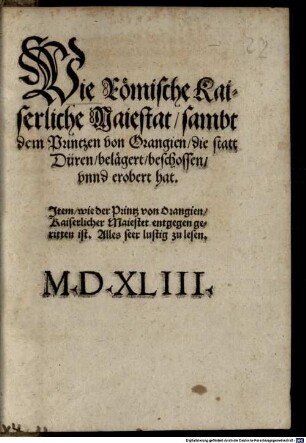 22
Wie Römische Kai-
serliche Maiestat/ sambt
dem Printzen von Orangien/ die statt
Düren/ belägert/ beschossen/
vnnd erobert hat.
Item/ wie der Printz von Orangien/
Kaiserlicher Maiestet entgegen ge-
ritten ist. Alles seer lustig zu lesen.
M.D.XLIII.